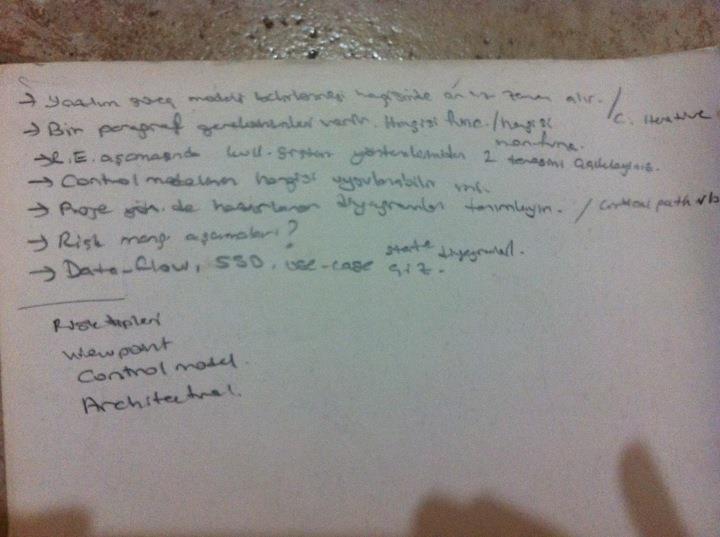 → Yazılım süreç modeli belirlemesi hangisinde en az zaman alır. / C. iterative
→ Bir paragraf gereksinimleri verir. Hangisi func. / hangisi nonfunc.
→ R.E. aşamasında kull. yöntemlerinden 2 tanesini açıklayınız.
→ Control modellerinin hangisi uygulanabilir
→ Proje yön. de hazırlanan diyagramları tanımlayın. / Critical path vb
→ Risk mang aşamaları?
→ Data-flow, SSD, use-case state diyagramları çiz.
Risk tipleri
Viewpoint
Control model.
Architectural.